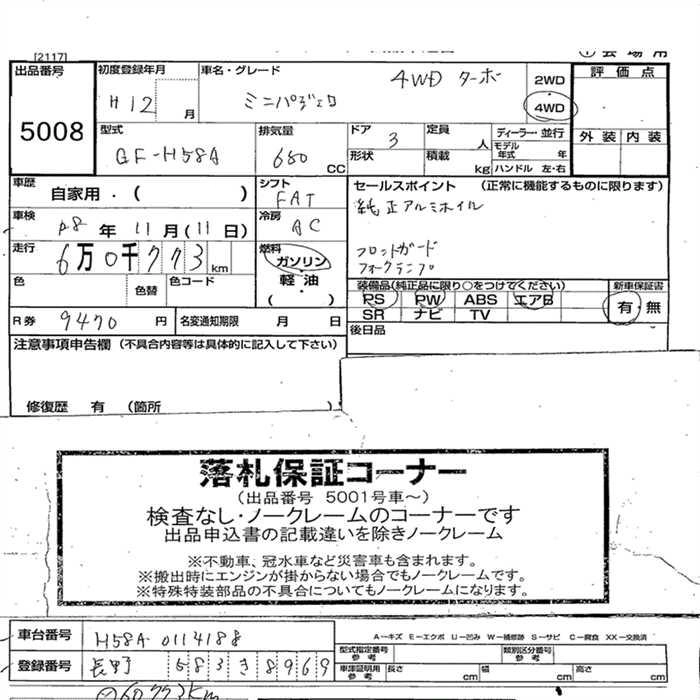 [2117]
出品番号
5008
初度登録年月
H12 月
車名・グレード
ミニパジェロ 4WD ターボ
2WD
4WD
評価点
外装 内装
型式
GF-H58A
排気量
660 CC
ドア 3
形状
定員 人
積載 kg
ディーラー・並行
モデル年式 年
ハンドル 左・右
車歴
自家用・( )
シフト
FAT
冷房
AC
車検
18年11月(11日)
走行
6万0千773km
燃料
ガソリン
軽油
( )
色
色替
色コード
セールスポイント (正常に機能するものに限ります)
純正アルミホイル
フロントガード
フォグランプ
装備品(純正品に限り○をつけてください)
PS PW ABS エアB
SR ナビ TV
新車保証書
有・無
R券 9470円
名変通知期限 月 日
後日品
注意事項申告欄 (不具合内容等は具体的に記入して下さい)
修復歴 有 (箇所 )
落札保証コーナー
(出品番号 5001号車~)
検査なし・ノークレームのコーナーです
出品申込書の記載違いを除きノークレーム
※不動車、冠水車など災害車も含まれます。
※搬出時にエンジンが掛からない場合でもノークレームです。
※特殊特装部品の不具合についてもノークレームになります。
車台番号 H58A-0114188
A－キズ E－エクボ U－凹み W－補修跡 S－サビ C－腐食 XX－交換済
登録番号 長野 583き8969
型式指定番号参考
類別区分番号
車庫証明用参考 長さ cm 幅 cm 高さ cm
60773km